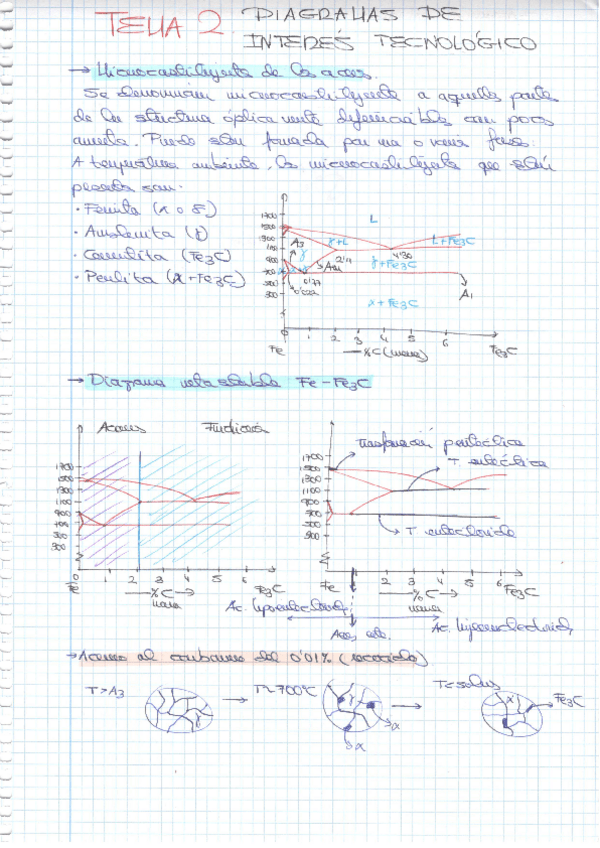 TEMA 2. DIAGRAMAS DE
INTERÉS TECNOLÓGICO
→ Microconstituyente de los aceros.
Se denominan microconstituyente a aquella parte
de la estructura ópticamente diferenciables con poco
aumento. Puede estar formada por una o varias fases.
A temperatura ambiente, los microconstituyente que están
son:
· Ferrita (α o δ)
· Austenita (γ)
· Cementita (Fe3C)
· Perlita (α+Fe3C)
1700
1500
1300
1100
900
700
500
300
L
A3
γ+L
γ
L+Fe3C
2'11
4'30
γ+Fe3C
0'77
0'022
A1
α+Fe3C
0 1 2 3 4 5 6
Fe
%C (masa)
Fe3C
→ Diagrama metaestable Fe-Fe3C
Aceros
Fundición
1700
1500
1300
1100
900
700
500
300
0 1 2 3 4 5 6
Fe
%C →
masa
Fe3C
Transformación peritéctica
T. eutéctica
T. eutectoide
1700
1500
1300
1100
900
700
500
0 1 2 3 4 5 6
Fe
%C →
masa
Fe3C
Ac. hipoeutectoide
Ac. hipereutectoide
→ Aceros al carbono del 0'01% (recocido)
T>A3
T≈700ºC
T<solvus
γ
α
α
α
Fe3C